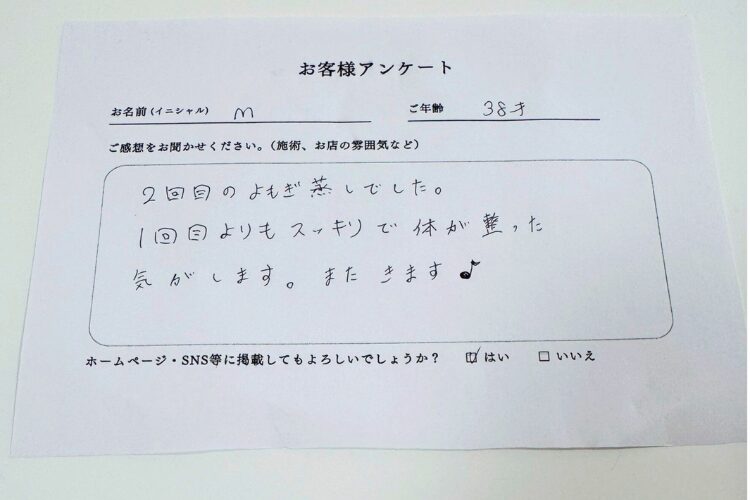 お客様アンケート
お名前(イニシャル) M ご年齢 38才
ご感想をお聞かせください。(施術、お店の雰囲気など)
2回目のよもぎ蒸しでした。
1回目よりもスッキリで体が整った
気がします。またきます♪
ホームページ・SNS等に掲載してもよろしいでしょうか? ☑はい □いいえ